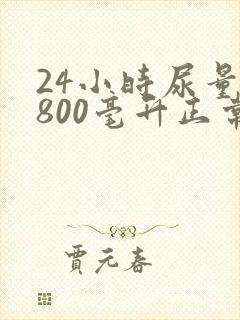 24小时尿量
800毫升正常
贾元春